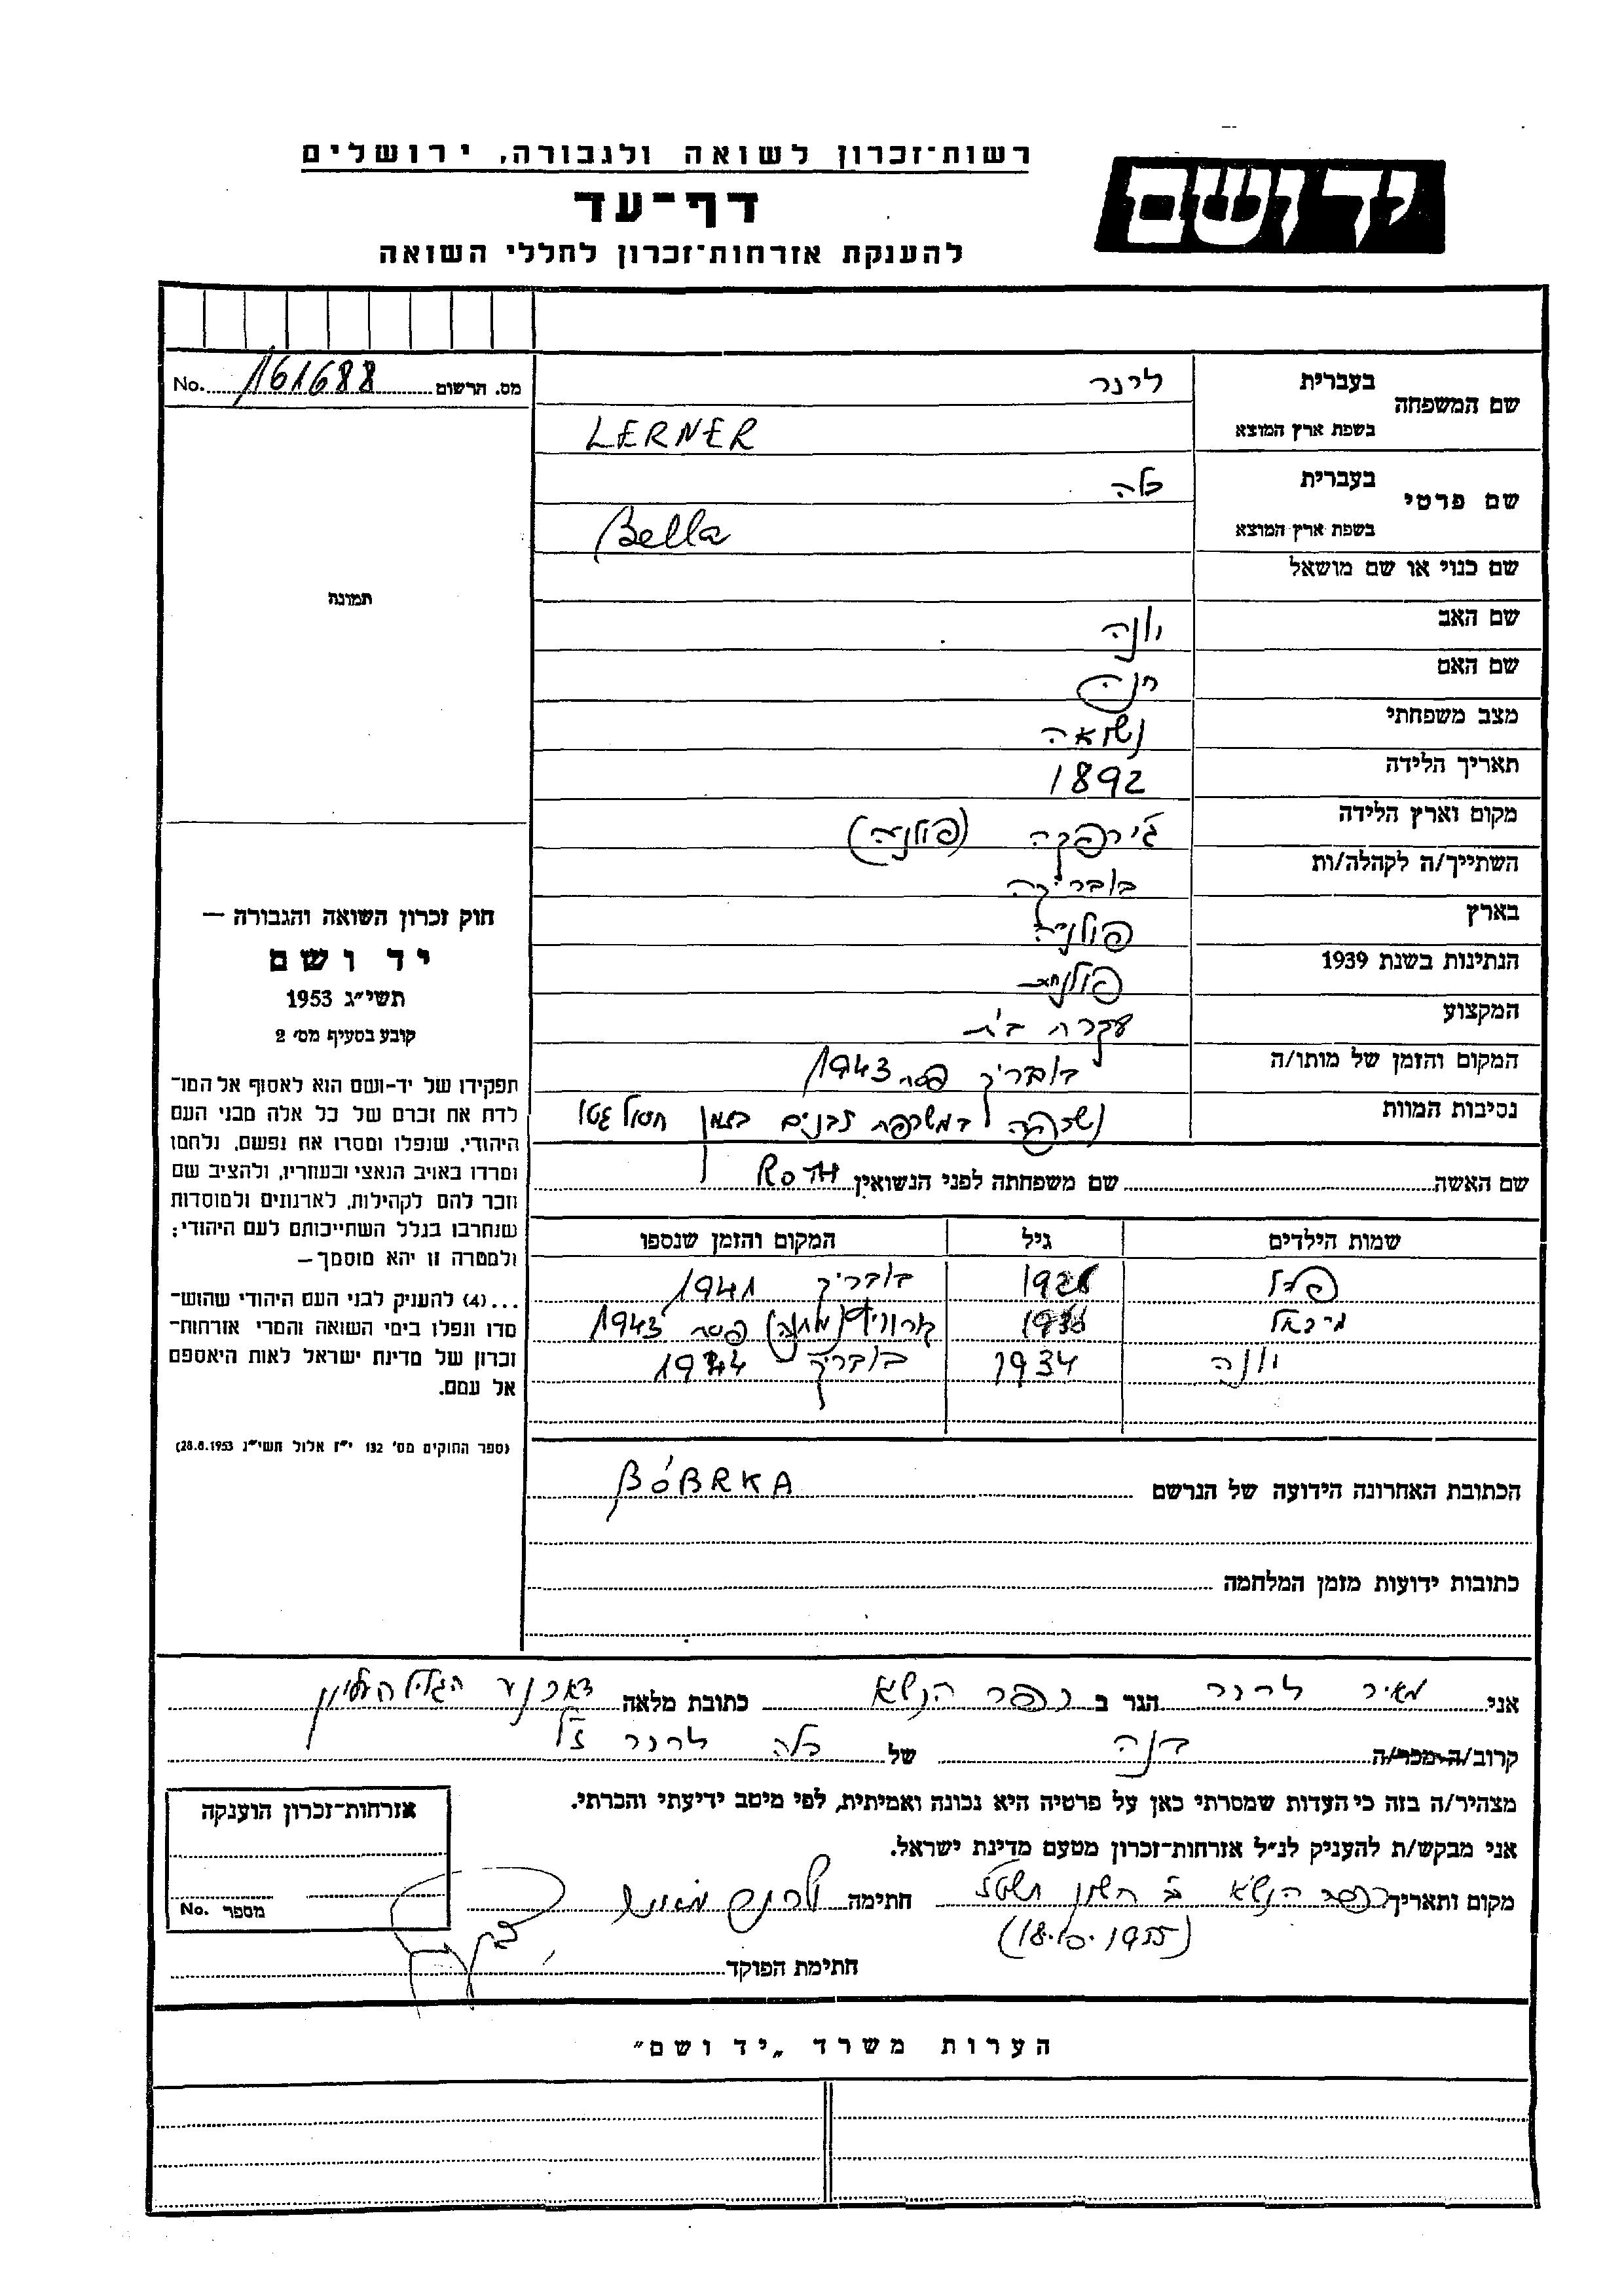 רשות־זכרון לשואה ולגבורה, ירושלים
יד ושם
דף־עד
להענקת אזרחות־זכרון לחללי השואה
מס. הרשום 161688 No.
שם המשפחה בעברית לרנר
בשפת ארץ המוצא LERNER
שם פרטי בעברית בלה
בשפת ארץ המוצא Bella
שם כנוי או שם מושאל
שם האב יונה
שם האם חנה
מצב משפחתי נשואה
תאריך הלידה 1892
מקום וארץ הלידה (פולניה)
השתייך/ה לקהלה/ות בוברקה
בארץ פולניה
הנתינות בשנת 1939 פולנית
המקצוע עקרת בית
המקום והזמן של מותו/ה בוברק פסח 1943
נסיבות המוות נשרפה במשרפת לבנים בזמן חסול גטו
שם האשה שם משפחתה לפני הנשואין ROTH
שמות הילדים גיל המקום והזמן שנספו
בוברק 1941
מיכאל (מחנה) פסח 1943
יונה 1934 בוברק 1944
הכתובת האחרונה הידועה של הנרשם BÓBRKA
כתובות ידועות מזמן המלחמה
תמונה
חוק זכרון השואה והגבורה —
יד ושם
תשי״ג 1953
קובע בסעיף מס׳ 2
תפקידו של יד-ושם הוא לאסוף אל המו־
לדת את זכרם של כל אלה מבני העם
היהודי, שנפלו ומסרו את נפשם, נלחמו
ומרדו באויב הנאצי ובעוזריו, ולהציב שם
וזכר להם לקהילות, לארגונים ולמוסדות
שנחרבו בגלל השתייכותם לעם היהודי;
ולמטרה זו יהא מוסמך—
...(4) להעניק לבני העם היהודי שהוש־
מדו ונפלו בימי השואה והמרי אזרחות־
זכרון של מדינת ישראל לאות היאספם
אל עמם.
(ספר החוקים מס׳ 132 י״ז אלול תשי״ג 28.8.1953)
אני מאיר לרנר הגר ב כפר הנשיא כתובת מלאה ד.אר נע הגליל העליון
קרוב/ה מכר/ה בנה של בלה לרנר ז״ל
מצהיר/ה בזה כי העדות שמסרתי כאן על פרטיה היא נכונה ואמיתית, לפי מיטב ידיעתי והכרתי.
אני מבקש/ת להעניק לנ״ל אזרחות־זכרון מטעם מדינת ישראל.
מקום ותאריך כפר הנשיא ב׳ חשון תשט״ז חתימה לרנר מאיר
(18.10.1955)
חתימת הפוקד
אזרחות־זכרון הוענקה
מספר No.
הערות משרד „יד ושם״